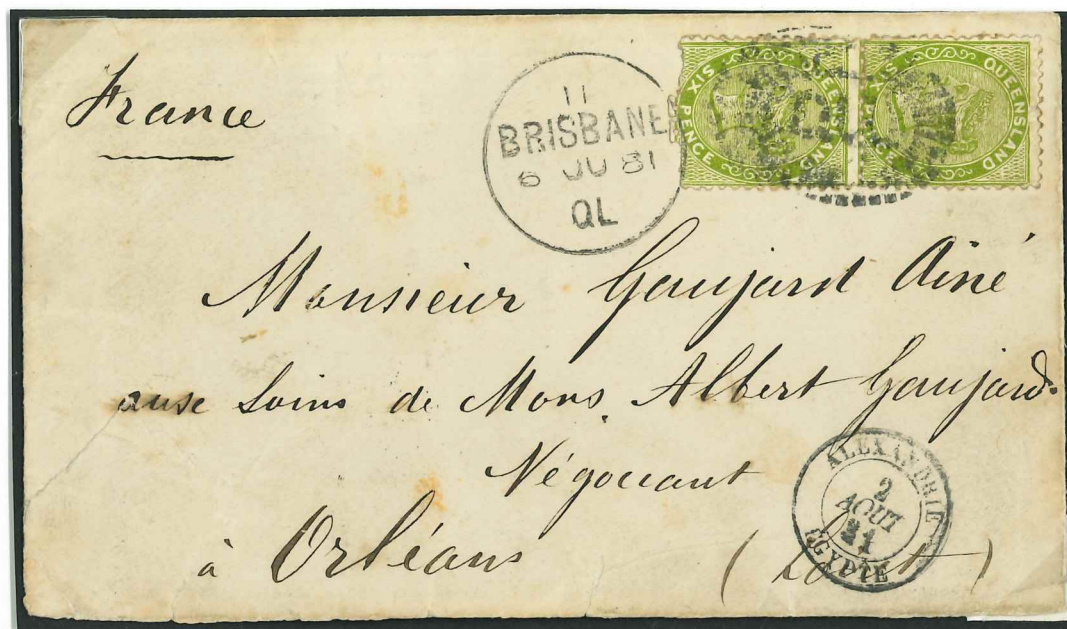 France
11
BRISBANE
6 JU 81
QL
SIX PENCE
QUEENSLAND
QUEENSLAND
SIX
Monsieur Gaujard Ainé
aux soins de Mons. Albert Gaujard
Négociant
à Orléans (Loiret)
ALEXANDRIE
2
AOUT
81
EGYPTE